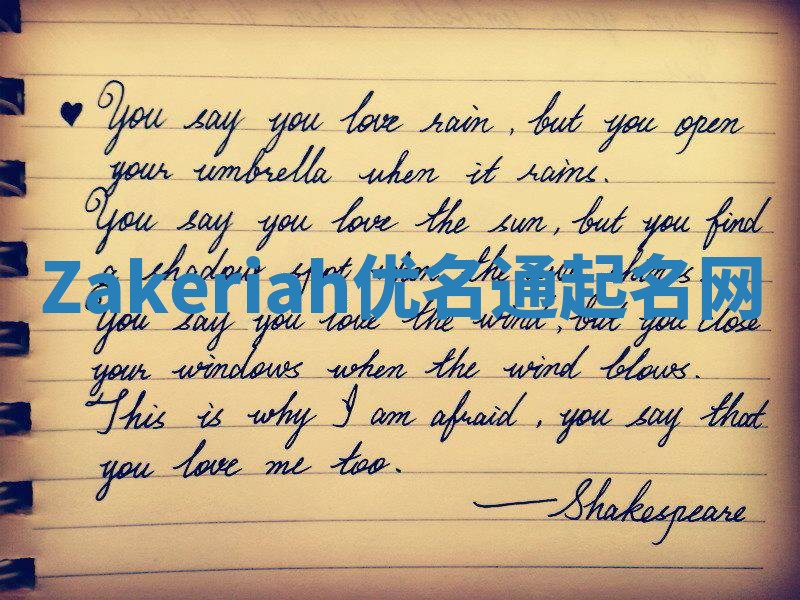 ♥ You say you love rain, but you open
your umbrella when it rains.
You say you love the sun, but you find
a shadow spot when the sun shines.
Zakeriah优名通起名网
You say you love the wind, but you close
your windows when the wind blows.
This is why I am afraid, you say that
you love me too.
—Shakespeare